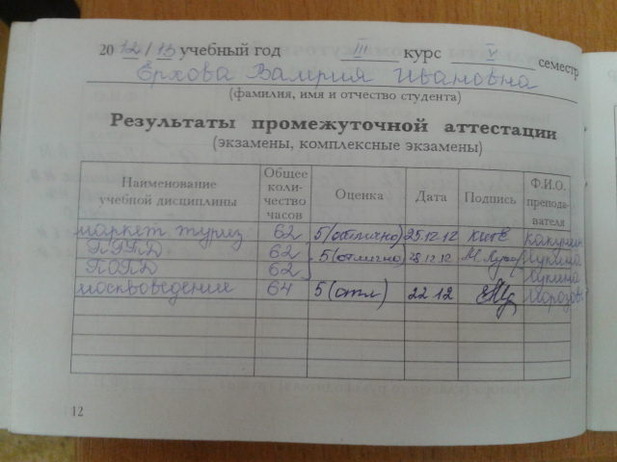 2012/13 учебный год III курс V семестр
Ерхова Валерия Ивановна
(фамилия, имя и отчество студента)
Результаты промежуточной аттестации
(экзамены, комплексные экзамены)
Наименование учебной дисциплины Общее коли- чество часов Оценка Дата Подпись Ф.И.О. препода- вателя
маркет туриз 62 5 (отлично) 25.12.12
62 5 (отлично) 28.12.12 Лукина
ПОПД 62 Лукина
москвоведение 64 5 (отл) 22 12 Морозова
12